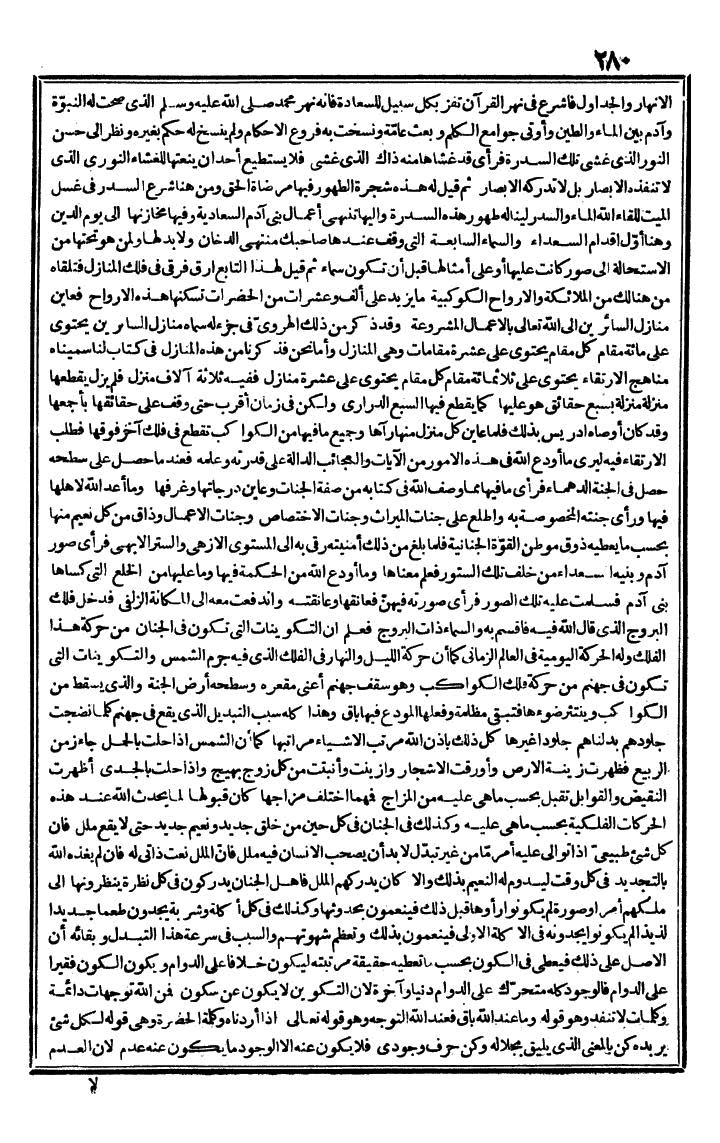 ٢٨٠
الانهار والجداول فاشرع في نهر القرآن تفز بكل سبيل للسعادة فانه نهر محمد صلى الله عليه وسلم الذى صحت له النبوّة
وآدم بين الماء والطين وأوتى جوامع الكلم وبعث عامّة ونسخت به فروع الاحكام ولم ينسخ له حكم بغيره ونظر الى حسن
النور الذى غشى تلك السدرة فرأى قد غشاها منه ذاك الذى غشى فلا يستطيع أحد ان ينعتها للغشاء النورى الذى
لا تنفذه الابصار بل لا تدركه الابصار ثم قيل له هذه شجرة الطهور فيها مرضاة الحق ومن هنا شرع السدر في غسل
الميت للقاء الله الماء والسدر ليناله طهور هذه السدرة واليها تنتهى أعمال بنى آدم السعادية وفيها مخازنها الى يوم الدين
وهنا أوّل اقدام السعداء والسماء السابعة التى وقف عندها صاحبك منتهى الدخان ولا بد لها ولمن هو تحتها من
الاستحالة الى صور كانت عليها أو على أمثالها قبل أن تكون سماء ثم قيل لهذا التابع ارق فرقى في فلك المنازل فتلقاه
من هنالك من الملائكة والارواح الكوكبية ما يزيد على ألف وعشرات من الحضرات تسكنها هذه الارواح فعاين
منازل السائرين الى الله تعالى بالاعمال المشروعة وقد ذكر من ذلك الهروىّ في جزء له سماه منازل السائرين يحتوى
على مائة مقام كل مقام يحتوى على عشرة مقامات وهى المنازل وأما نحن فذكرنا من هذه المنازل في كتاب لنا سميناه
مناهج الارتقاء يحتوى على ثلثمائة مقام كل مقام يحتوى على عشرة منازل ففيه ثلاثة آلاف منزل فلم يزل يقطعها
منزلة منزلة بسبع حقائق هو عليها كما يقطع فيها السبع الدرارى ولكن في زمان أقرب حتى وقف على حقائقها بأجمعها
وقد كان أوصاه ادريس بذلك فلما عاين كل منزل منها رآها وجميع ما فيها من الكواكب تقطع في فلك آخر فوقها فطلب
الارتقاء فيه ليرى ما أودع الله في هذه الامور من الآيات والعجائب الدالة على قدرته وعلمه فعند ما حصل على سطحه
حصل في الجنة الدهماء فرأى ما فيها مما وصف الله في كتابه من صفة الجنات وعاين درجاتها وغرفها وما أعد الله لاهلها
فيها ورأى جنته المخصوصة به واطلع على جنات الميراث وجنات الاختصاص وجنات الاعمال وذاق من كل نعيم منها
بحسب ما يعطيه ذوق موطن القوّة الجنانية فلما بلغ من ذلك أمنيته رقى به الى المستوى الازهى والستر الابهى فرأى صور
آدم وبنيه السعداء من خلف تلك الستور فعلم معناها وما أودع الله من الحكمة فيها وما عليها من الخلع التى كساها
بنى آدم فسلمت عليه تلك الصور فرأى صورته فيهنّ فعانقها وعانقته واندفعت معه الى المكانة الزلفى فدخل فلك
البروج الذى قال الله فيه فاقسم به والسماء ذات البروج فعلم ان التكوينات التى تكون في الجنان من حركة هذا
الفلك وله الحركة اليومية في العالم الزمانى كما أن حركة الليل والنهار في الفلك الذى فيه جرم الشمس والتكوينات التى
تكون في جهنم من حركة فلك الكواكب وهو سقف جهنم أعنى مقعره وسطحه أرض الجنة والذى يسقط من
الكواكب وينتثر ضوءها فتبقى مظلمة وفعلها المودع فيها باق وهذا كله سبب التبديل الذى يقع في جهنم كلما نضجت
جلودهم بدلناهم جلودا غيرها كل ذلك باذن الله مرتب الاشياء مراتبها كما أن الشمس اذا حلت بالحمل جاء زمن
الربيع فظهرت زينة الارض وأورقت الاشجار وازينت وأنبتت من كل زوج بهيج واذا حلت بالجدى أظهرت
النقيض والقوابل تقبل بحسب ما هى عليه من المزاج فهما اختلف مزاجها كان قبولها لما يحدث الله عند هذه
الحركات الفلكية بحسب ما هى عليه وكذلك في الجنان في كل حين من خلق جديد ونعيم جديد حتى لا يقع ملل فان
كل شئ طبيعىّ اذا توالى عليه أمر مّا من غير تبدّل لا بد أن يصحب الانسان فيه ملل فانّ الملل نعت ذاتى له فان لم يغذه الله
بالتجديد في كل وقت ليدوم له النعيم بذلك والا كان يدركهم الملل فاهل الجنان يدركون في كل نظرة ينظرونها الى
ملكهم أمرا وصورة لم يكونوا رأوها قبل ذلك فينعمون بحدوثها وكذلك في كل أكلة وشربة يجدون طعما جديدا
لذيذا لم يكونوا يجدونه في الاكلة الاولى فينعمون بذلك وتعظم شهوتهم والسبب في سرعة هذا التبدل وبقائه أن
الاصل على ذلك فيعطى في الكون بحسب ما تعطيه حقيقة مرتبته ليكون خلاقا على الدوام ويكون الكون فقيرا
على الدوام فالوجود كله متحرّك على الدوام دنيا وآخرة لان التكوين لا يكون عن سكون فمن الله توجهات دائمة
وكلمات لا تنفد وهو قوله وما عند الله باق فعند الله التوجه وهو قوله تعالى اذا أردناه وكلمة الحضرة وهى قوله لكل شئ
يريده كن بالمعنى الذى يليق بجلاله وكن حرف وجودى فلا يكون عنه الا الوجود ما يكون عنه عدم لان العدم
لا